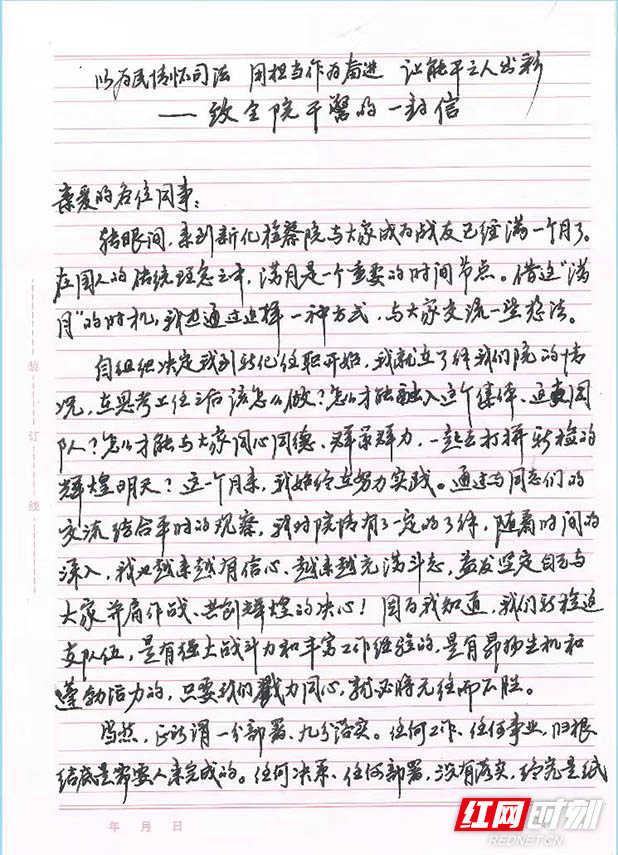 以为民情怀司法 用担当作为奋进 让能干之人出彩
——致全院干警的一封信
亲爱的各位同事:
转眼间,来到新化检察院与大家成为战友已经满一个月了。
在国人的传统理念之中,满月是个重要的时间节点。借这“满
月”的时机,我想通过这样一种方式,与大家交流一些想法。
自组织决定我到新化任职开始,我就在了解我们院的情
况,在思考上任之后该怎么做?怎么才能融入这个集体、这支团
队?怎么才能与大家同心同德、群策群力,一起去打拼新检的
辉煌明天?这一个月来,我始终在努力实践。通过与同志们的
交流结合平时的观察,我对院情有了一定的了解,随着时间的
深入,我也越来越有信心、越来越充满斗志,益发坚定自己与
大家并肩作战、共创辉煌的决心!因为我知道,我们新检这
支队伍,是有强大战斗力和丰富工作经验的,是有昂扬生机和
蓬勃活力的,只要我们戮力同心,就必将无往而不胜。
当然,正所谓一分部署、九分落实。任何工作、任何事业,归根
结底是需要人来完成的。任何决策、任何部署,没有落实,终究是纸
装
订
线
年 月 日
红网时刻
REDNET.CN